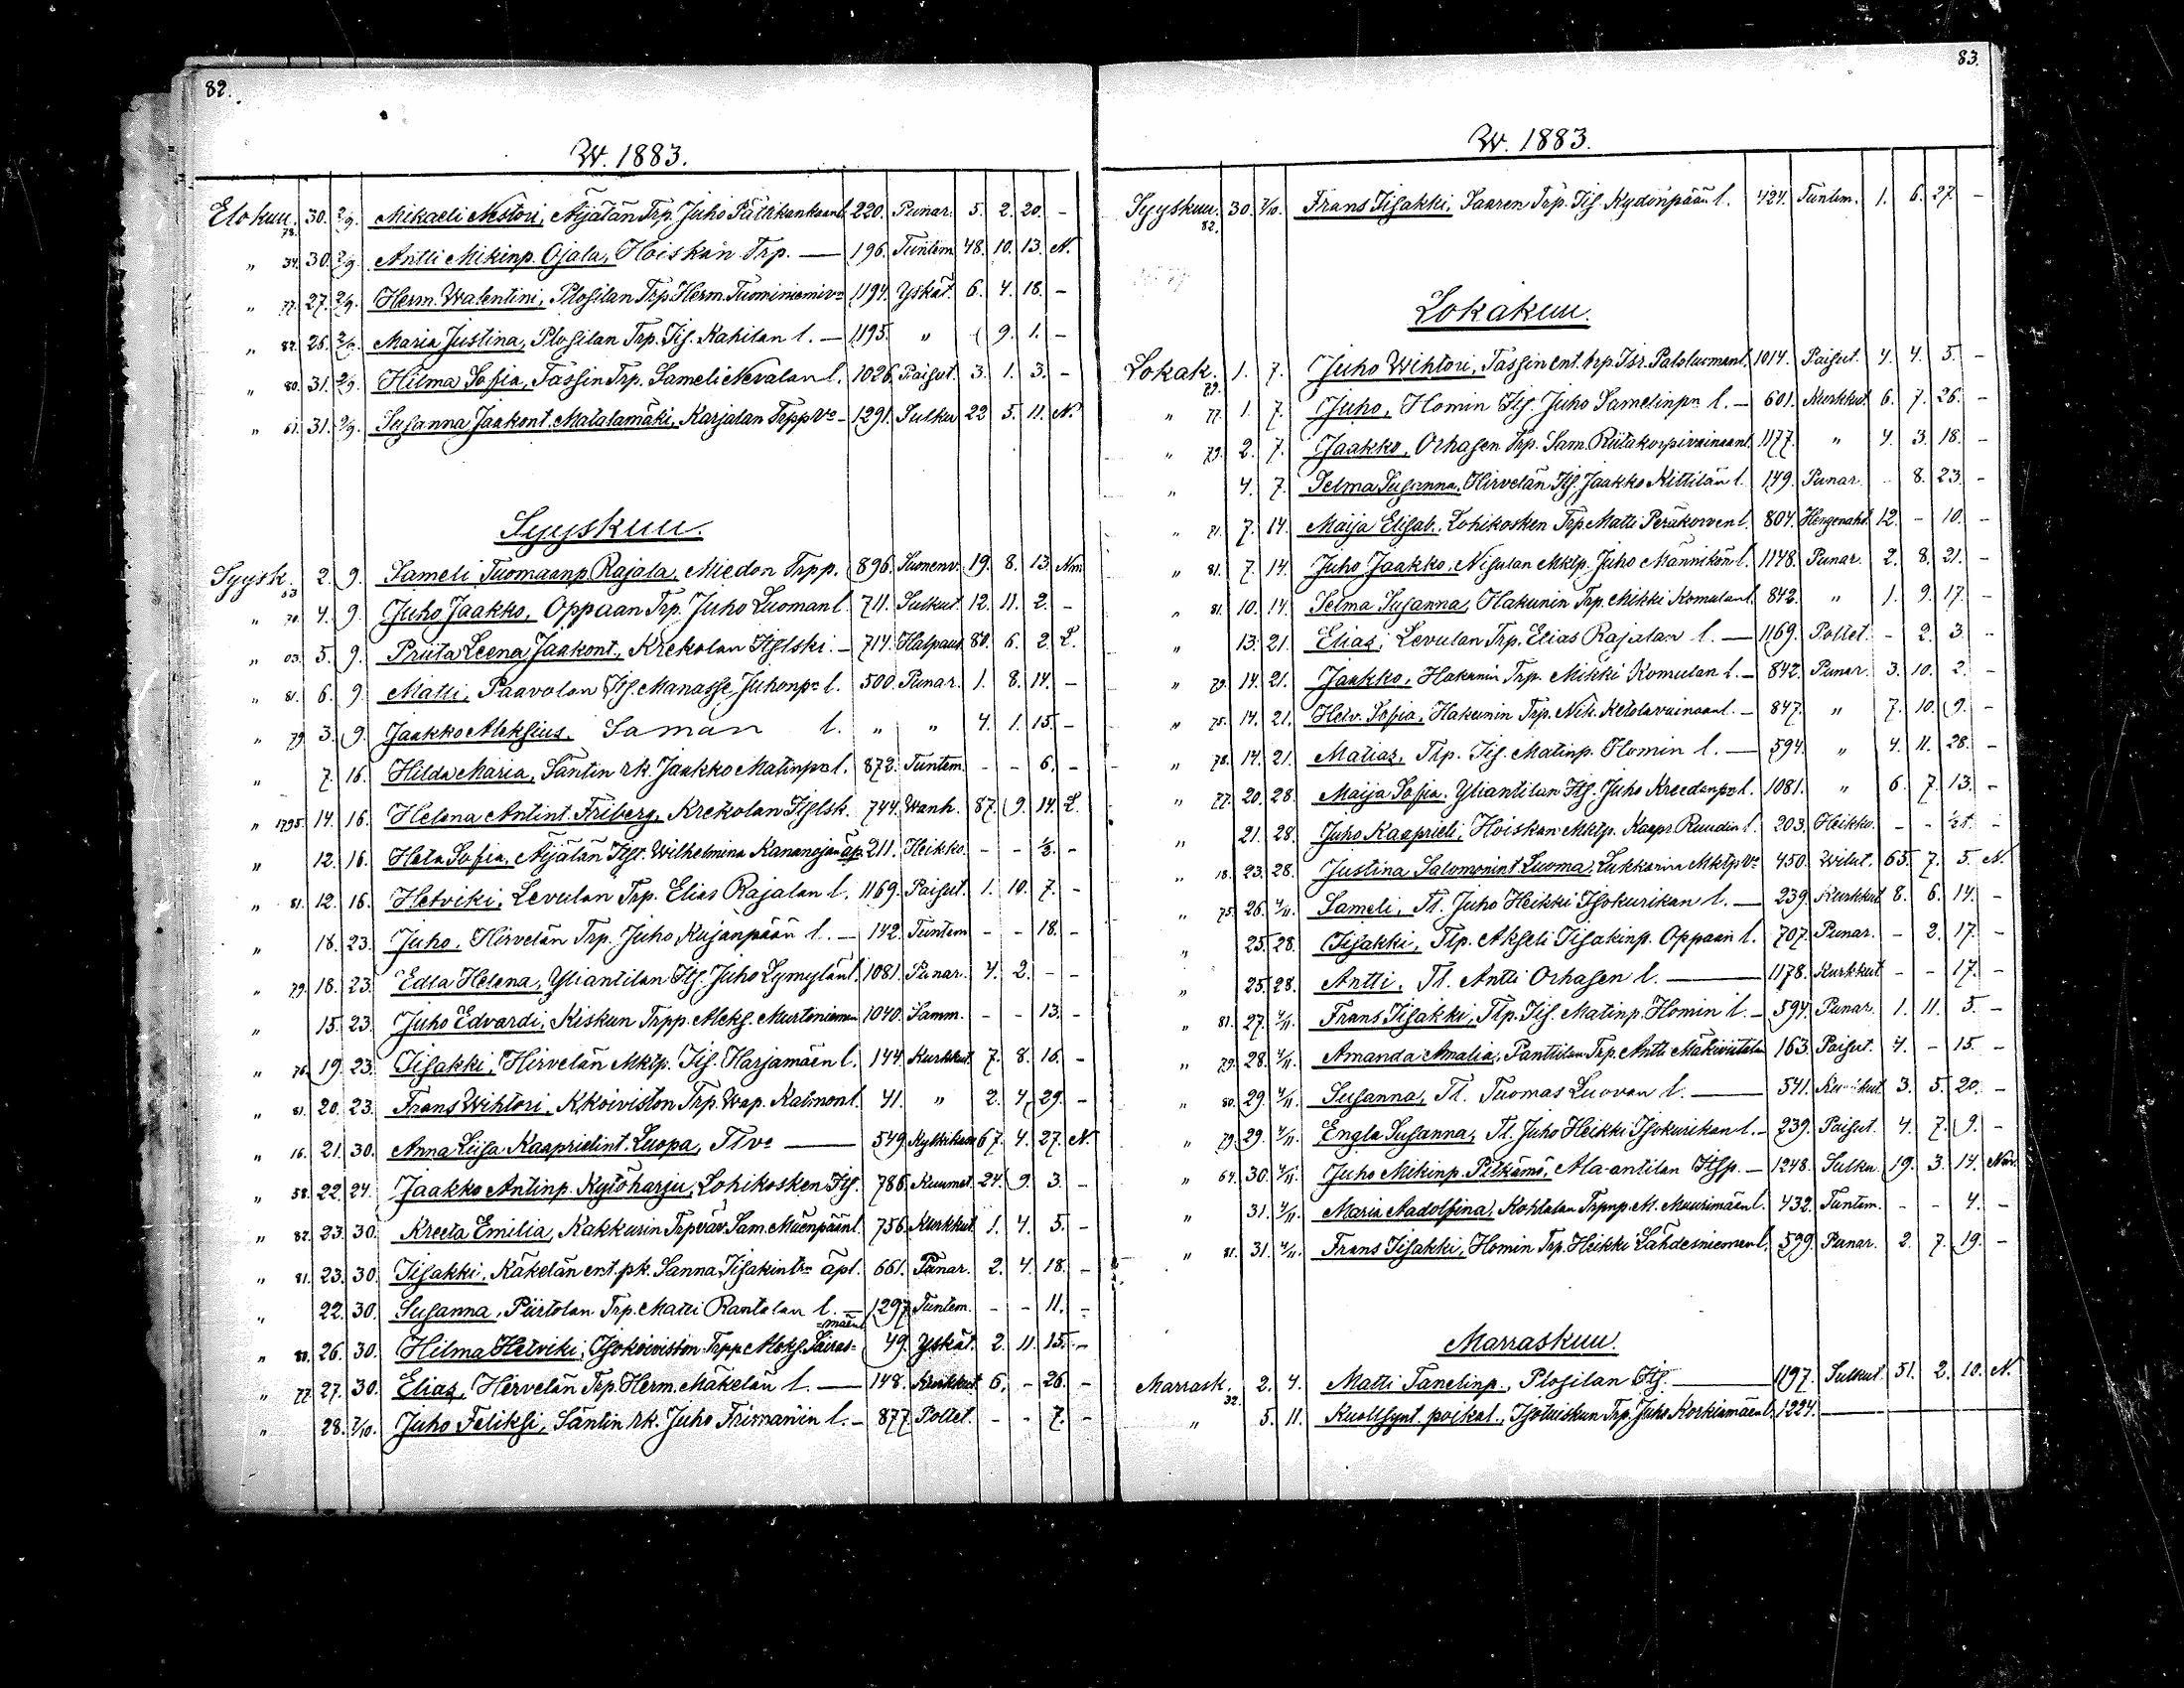 82.
W. 1883.
Elokuu. 78. 30. 2/9. Mikaeli Nestori, Äijälän Trp. Juho Pätkänkaanl. 220. Punar. 5. 2. 20. -
" 34. 30. 2/9. Antti Mikinp. Ojala, Hoiskan Trp. — 196. Tuntem 48. 10. 13. N.
" 77. 27. 2/9. Herm. Walentini, Plosilan Trp. Herm. Tuominiemivn 1194. Yskät. 6. 4. 18. -
" 82. 26. 2/9. Maria Justina, Plosilan Trp. Iis. Kahilan l. — 1195. " 9. 1. -
" 80. 31. 2/9. Hilma Sofia, Tassin Trp. Sameli Nevalan l. 1026. Paisut. 3. 1. 3. -
" 61. 31. 2/9. Susanna Jaakont. Matalamäki, Karjalan Trpp Vo - 1291. Sulku 22 5. 11. N.
Syyskuu.
Syysk. 63 2. 9. Sameli Tuomaanp Rajala, Miedon Trpp. 896. Suonenv. 19. 8. 13. Nm.
" 70. 4. 9. Juho Jaakko, Oppaan Trp. Juho Luoman l. 711. Sulkut. 12. 11. 2. -
" 03. 5. 9. Priita Leena Jaakont., Krekolan Itslski. - 714. Halpaus 80. 6. 2. L.
" 81. 6. 9. Matti, Paavolan Its. Manasse Juhonpn l. 500. Punar. 1. 8. 14. -
" 79. 3. 9. Jaakko Aleksius, Saman l. " " 4. 1. 15. -
" 7. 16. Hilda Maria, Säntin rk. Jaakko Matinpn l. 872. Tuntem. - - 6. -
" 1795. 14. 16. Helena Antint. Friberg, Krekolan Itslsk. 744. Wanh. 87. 9. 14. L.
" 12. 16. Heta Sofia, Äijälän Itst. Wilhelmina Kananojan äp. 211. Heikko. - - ½. -
" 81. 12. 16. Hetviki, Levulan Trp. Elias Rajalan l. 1169. Paisut. 1. 10. 7. -
" 18. 23. Juho, Hirvelän Trp. Juho Kujanpään l. — 142. Tuntem - - 18. -
" 79. 18. 23. Edla Helena, Yliantilan Its. Juho Lymylän l. 1081. Punar. 4. 2. - -
" 15. 23. Juho Edvardi, Kiskun Trpp. Aleks. Murtoniemen 1040. Samm. - - 13. -
" 76. 19. 23. Iisakki, Hirvelän Mktp. Iis. Harjamäen l. 144. Kurkkut. 7. 8. 16. -
" 81. 20. 23. Frans Wihtori, Kkoiviston Trp. Wap. Kalmon l. 41. " 2. 4. 29. -
" 16. 21. 30. Anna Liisa Kaaprielint. Luopa, Tlvo — 549. 67. 4. 27. N.
" 58. 22. 24. Jaakko Antinp. Kytöharju, Lohikosken Its. 786. Kuumet. 24. 9. 3. -
" 82. 23. 30. Kreeta Emilia, Kakkurin Trpväv. Sam. Mäenpäänl. 756. Kurkkut 1. 4. 5. -
" 81. 23. 30. Iisakki, Käkelän ent. pk. Sanna Iisakintrn äpl. 661. Punar. 2. 4. 18. -
" 22. 30. Susanna, Piirtolan Trp. Matti Rantalan l. — 1297. Tuntem. - - 11. -
" 80. 26. 30. Hilma Hetviki, Isokoiviston Trpp Aleks. Sairas= =mäenl 49. Yskät. 2. 11. 15. -
" 77. 27. 30. Elias, Hirvelän Trp. Herm. Mäkelän l. — 148. Kurkkut 6. - 26. -
" 28. 7/10. Juho Feliksi, Säntin rk. Juho Frimanin l. - 877. Poltet. - - 7. -
83.
W. 1883.
Syyskuu. 82. 30. 7/10. Frans Iisakki, Saaren Trp. Iis. Kydönpään l. 424. Tuntem. 1. 6. 27. -
Lokakuu.
Lokak. 79. 1. 7. Juho Wihtori, Tassin ent. trp. Isr. Paloluomanl. 1014. Paisut. 4. 4. 5. -
" 77. 1. 7. Juho, Homin Its. Juho Samelinpn l. - 601. Kurkkut. 6. 7. 26. -
" 79. 2. 7. Jaakko, Orhasen Trp. Sam. Riitakorpivainaanl. 1177. " 4. 3. 18. -
" 4. 7. Selma Susanna, Hirvelän Its. Jaakko Nittilän l. 149. Punar. - 8. 23. -
" 71. 7. 14. Maija Elisab. Lohikosken Trp. Matti Peräkorven l. 804. Hengenahd. 12. - 10. -
" 81. 7. 14. Juho Jaakko, Nisulan Mktp. Juho Männikön l. 1148. Punar. 2. 8. 21. -
" 81. 10. 14. Selma Susanna, Hakunin Trp. Mikki Komulan l. 842. " 1. 9. 17. -
" 13. 21. Elias, Levulan Trp. Elias Rajalan l. — 1169. Poltet. - 2. 3. -
" 79. 14. 21. Jaakko, Hakunin Trp. Mikki Komulan l. - 842. Punar. 3. 10. 2. -
" 75. 14. 21. Hetv. Sofia, Hakunin Trp. Nik. Ketolavainaan l. - 847. " 7. 10. 9. -
" 78. 14. 21. Matias, Tlp. Iis. Matinp. Homin l. — 594. " 4. 11. 28. -
" 77. 20. 28. Maija Sofia, Yliantilan Its. Juho Kreedonpn l. 1081. " 6. 7. 13. -
" 21. 28. Juho Kaaprieli, Hoiskan Mktp. Kaapr. Ruudin l. 203. Heikko. - - ½ t. -
" 18. 23. 28. Justina Salomonint Luoma, Lukkarin Mktp Vo 450. Wilut. 65. 7. 5. N.
" 75. 26. 4/11. Sameli, Tl. Juho Heikki Isokurikan l. — 239. Kurkkut 8. 6. 14. -
" 25. 28. Iisakki, Tlp. Akseli Iisakinp. Oppaan l. 707. Punar. - 2. 17. -
" 25. 28. Antti, Tl. Antti Orhasen l. — 1178. Kurkkut - - 17. -
" 81. 27. 4/11. Frans Iisakki, Tlp. Iis. Matinp. Homin l. - 594. Punar. 1. 11. 5. -
" 79. 28. 4/11. Amanda Amalia, Panttilan Trp. Antti Mäkiviitalan 163. Paisut. 4. - 15. -
" 80. 29. 4/11. Susanna, Tl. Tuomas Luovan l. — 541. Kurkkut 3. 5. 20. -
" 79. 29. 4/11. Engla Susanna, Tl. Juho Heikki Isokurikan l. - 239. Paisut. 4. 7. 9. -
" 64. 30. 4/11. Juho Mikinp. Pitkämö, Ala-antilan Itsp. - 1248. Sulku. 19. 3. 14. Nm.
" 31. 4/11. Maria Aadolfina, Kohtalan Trpvp. M. Muurimäen l. 432. Tuntem. - - 4. -
" 81. 31. 4/11. Frans Iisakki, Homin Trp. Heikki Lähdesniemen l. 599. Punar. 2. 7. 19. -
Marraskuu.
Marrask. 32. 2. 4. Matti Tanelinp., Plosilan Its. — 1197. Sulkut. 51. 2. 10. N.
" 5. 11. Kuoll.synt. poikal., Isotuiskun Trp. Juho Korkiamäen l. 1224. —